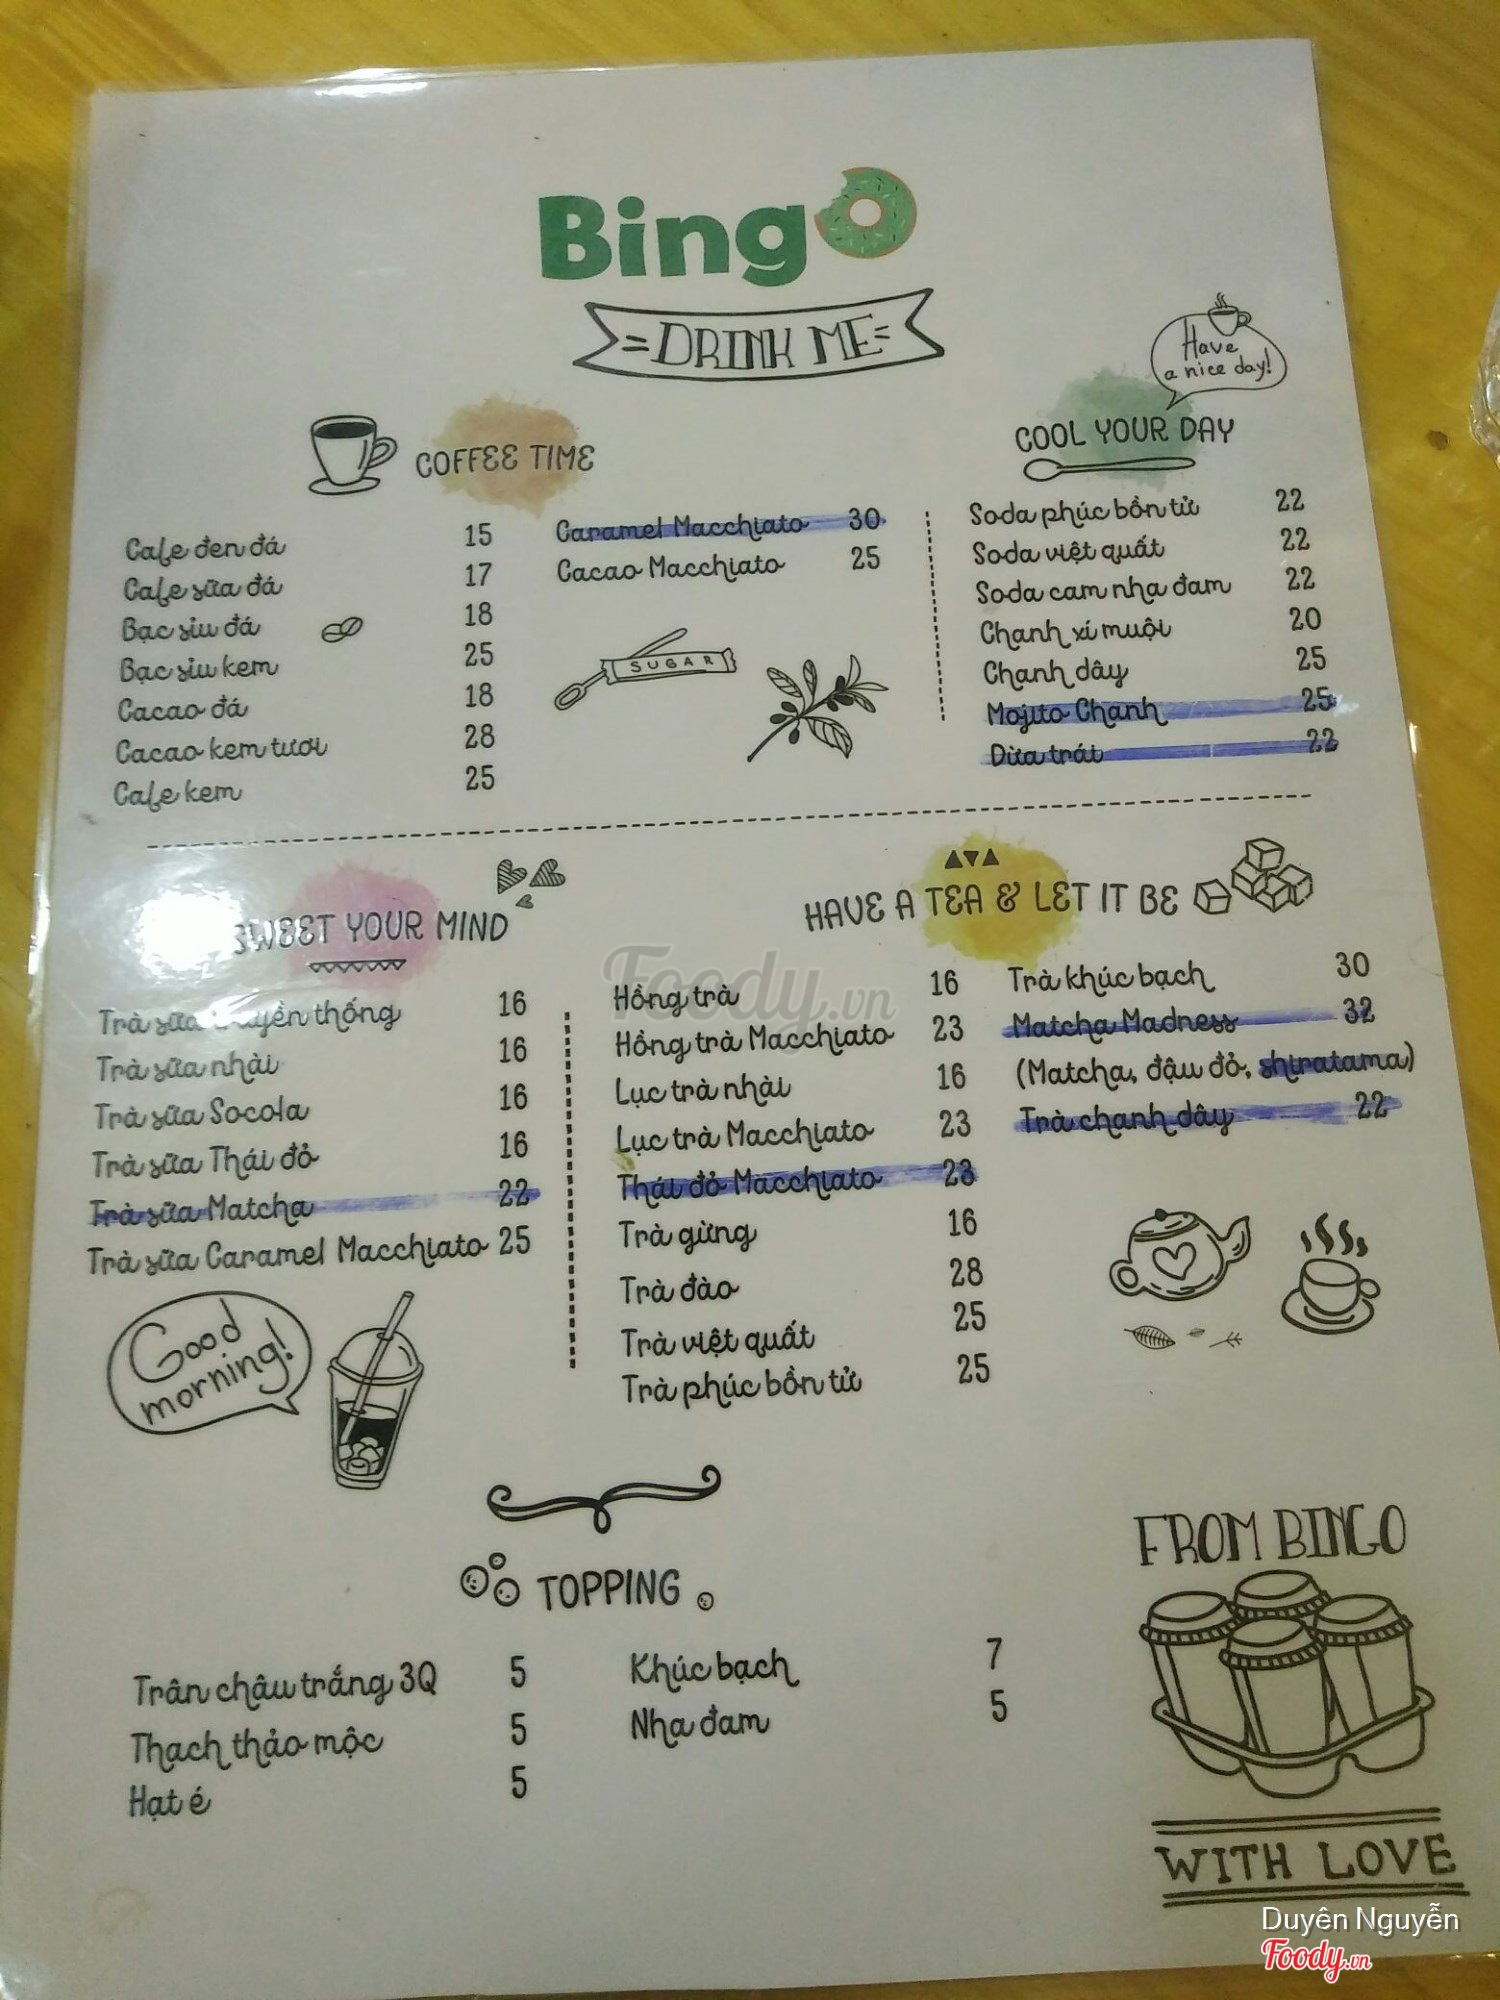 Bingo
DRINK ME
Have
a nice day!
COFFEE TIME
Cafe đen đá 15
Cafe sữa đá 17
Bạc sỉu đá 18
Bạc sỉu kem 25
Cacao đá 18
Cacao kem tươi 28
Cafe kem 25
Caramel Macchiato 30
Cacao Macchiato 25
SUGAR
COOL YOUR DAY
Soda phúc bồn tử 22
Soda việt quất 22
Soda cam nha đam 22
Chanh xí muội 20
Chanh dây 25
Mojito Chanh 25
Dừa trái 22
SWEET YOUR MIND
Trà sữa truyền thống 16
Trà sữa nhài 16
Trà sữa Socola 16
Trà sữa Thái đỏ 16
Trà sữa Matcha 22
Trà sữa Caramel Macchiato 25
Good
morning!
HAVE A TEA & LET IT BE
Hồng trà 16
Hồng trà Macchiato 23
Lục trà nhài 16
Lục trà Macchiato 23
Thái đỏ Macchiato 23
Trà gừng 16
Trà đào 28
Trà việt quất 25
Trà phúc bồn tử 25
Trà khúc bạch 30
Matcha Madness 32
(Matcha, đậu đỏ, shiratama)
Trà chanh dây 22
Foody.vn
TOPPING
Trân châu trắng 3Q 5
Thạch thảo mộc 5
Hạt é 5
Khúc bạch 7
Nha đam 5
FROM BINGO
WITH LOVE
Duyên Nguyễn
Foody.vn